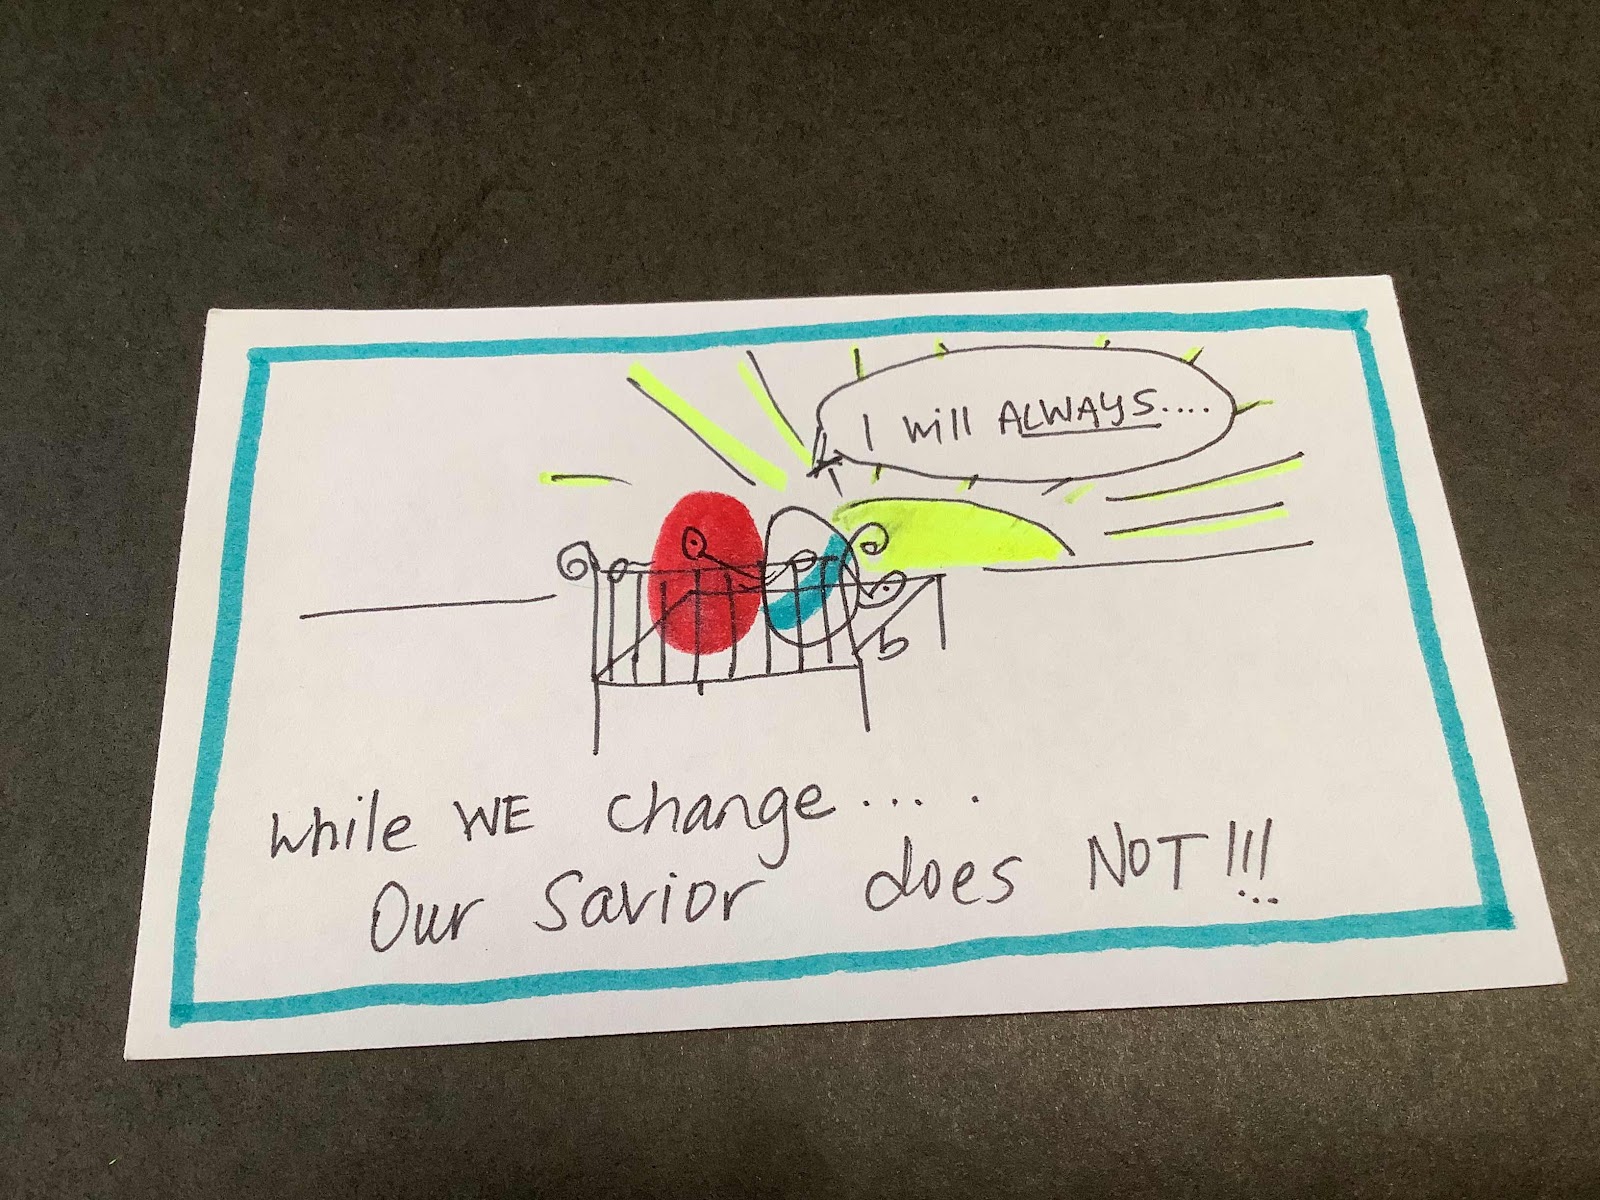 I will ALWAYS....
while WE change.... .
Our Savior does NOT!!!